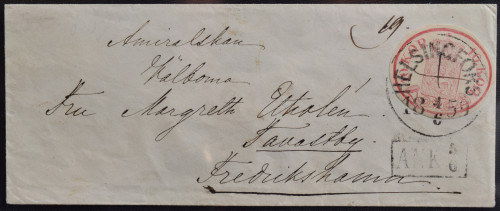 19.
Amiralskan
Välborna
Fru Margreth Etholén.
Tavastby.
Fredrikshamn.
HELSINGFORS
4
1859
6
ANK
5
6